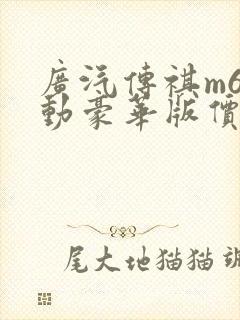 廣汽傳祺m6
動豪華版價
尾大地猫猫